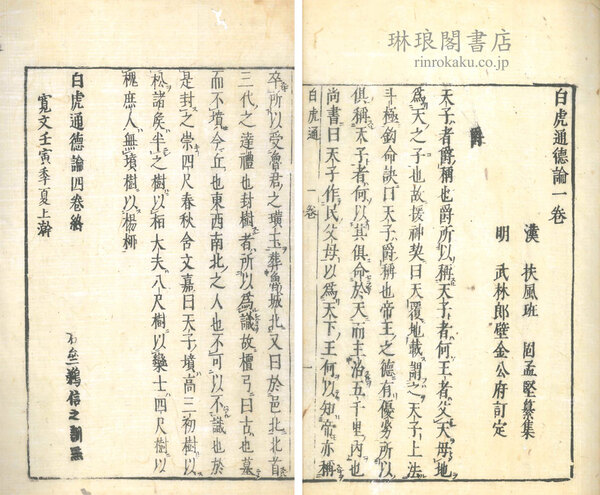 琳琅閣書店
rinrokaku.co.jp
白虎通德論一卷
漢 扶風班 固孟堅纂集
明 武林郎壁金公府訂定
爵
天子者爵稱也爵所以稱天子者何王者父天母地
爲天之子也故援神契曰天覆地載謂之天子上法
斗極鉤命訣曰天子爵稱也帝王之德有優劣所以
俱稱天子者何以其俱命於天而主治五千里內也
尚書曰天子作民父母以爲天下王何以知帝亦稱
白虎通 一卷 一
卒所以受魯君之璜玉葬魯城北又曰於邑北北首
三代之達禮也封樹者所以爲識故檀弓曰古也墓
而不墳今丘也東西南北之人也不可以不識也於
是封之崇四尺春秋含文嘉曰天子墳高三初樹以
松諸矦半之樹以栢大夫八尺樹以欒士四尺樹以
槐庶人無墳樹以楊柳
白虎通德論四卷終
寬文壬寅季夏上澣
鵜信之訓點